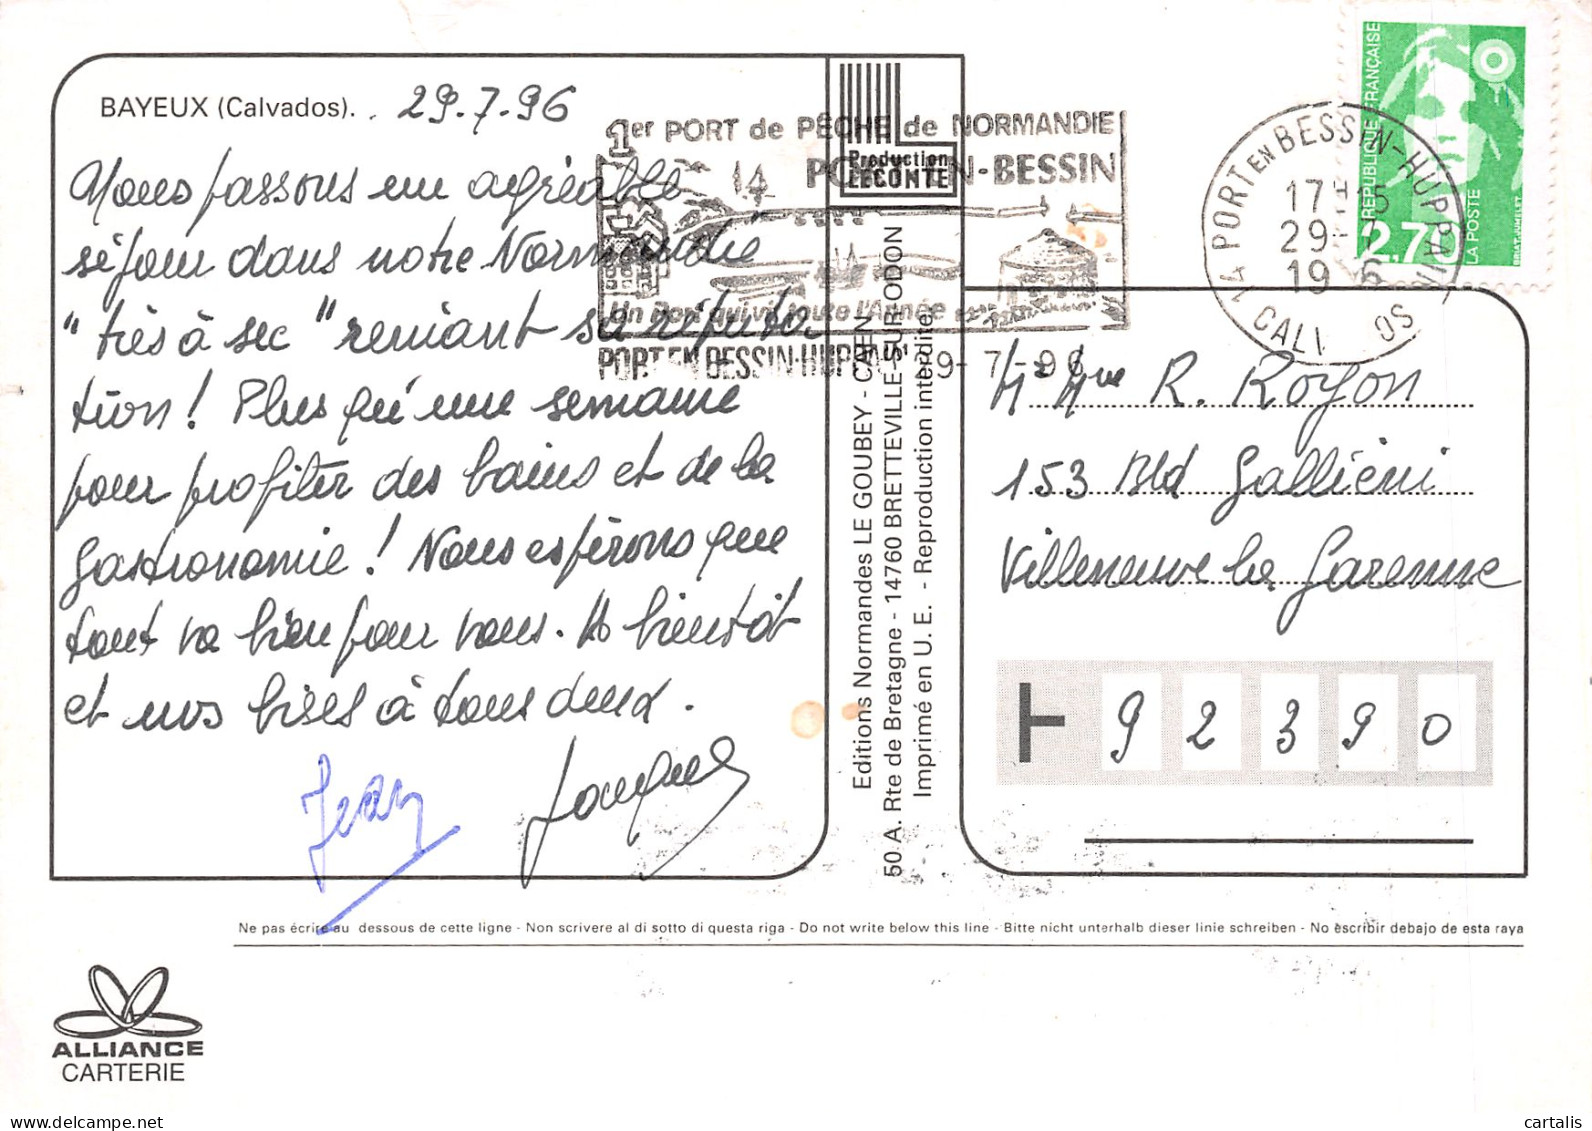 BAYEUX (Calvados). 29.7.96
Nous passons un agréable
séjour dans notre Normandie
"très à sec" reniant sa réputa
tion ! Plus qu'une semaine
pour profiter des bains et de la
gastronomie ! Nous espérons que
tout va bien pour vous. A bientôt
et nos bises à tous deux.
Jean
Jacques
1er PORT de PÊCHE de NORMANDIE
PORT-EN-BESSIN
Un Port qui vit toute l'Année
PORT EN BESSIN-HUPPAIN 29-7-96
Production
LECONTE
Editions Normandes LE GOUBEY - CAEN
50 A. Rte de Bretagne - 14760 BRETTEVILLE-SUR-ODON
Imprimé en U. E. - Reproduction interdite
14 PORT EN BESSIN-HUPPAIN
17H15
29-7
19 6
CALVADOS
RÉPUBLIQUE FRANÇAISE
2,70
LA POSTE
BRIAT-JUMELET
M. Mme R. Royon
153 Bld Galliéni
Villeneuve la Garenne
92390
Ne pas écrire au dessous de cette ligne - Non scrivere al di sotto di questa riga - Do not write below this line - Bitte nicht unterhalb dieser linie schreiben - No escribir debajo de esta raya
ALLIANCE
CARTERIE
delcampe.net
cartalis